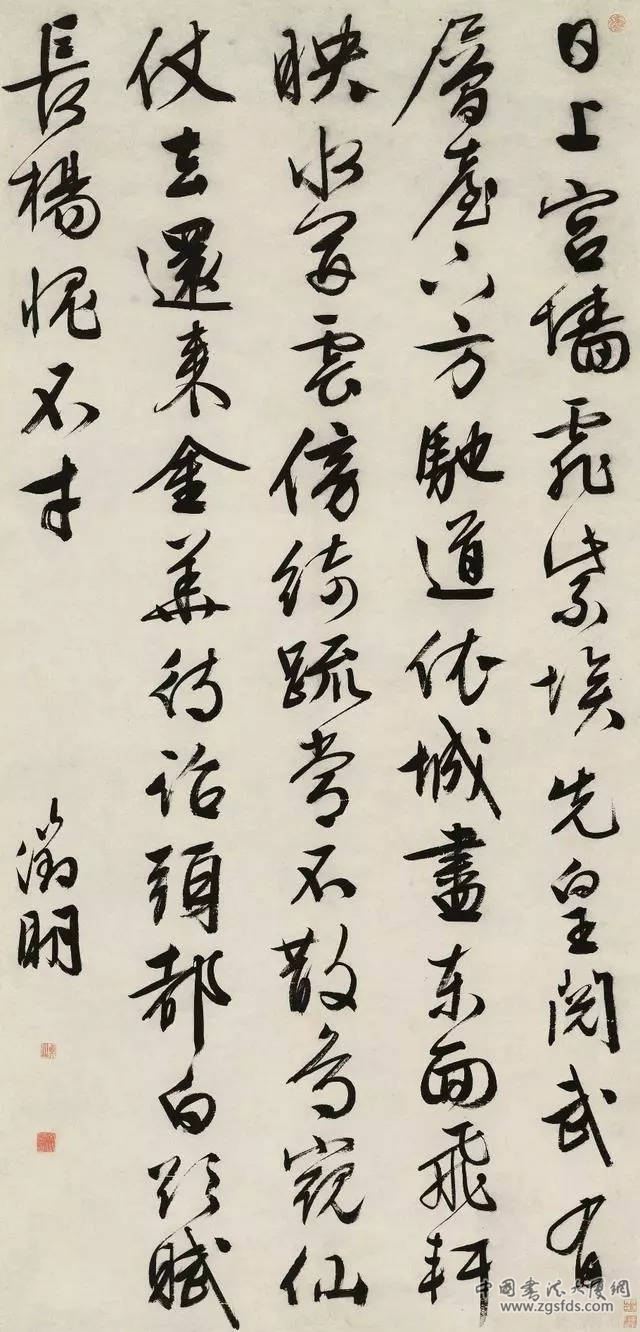 日上宮墻霏紫埃先皇閲武有
層臺下方馳道依城盡東面飛軒
映水開雲傍綺疏常不散鳥窺仙
仗去還来金華待詔頭都白欲賦
長楊愧不才
徵明
中國書法大厦網
www.zgsfds.com